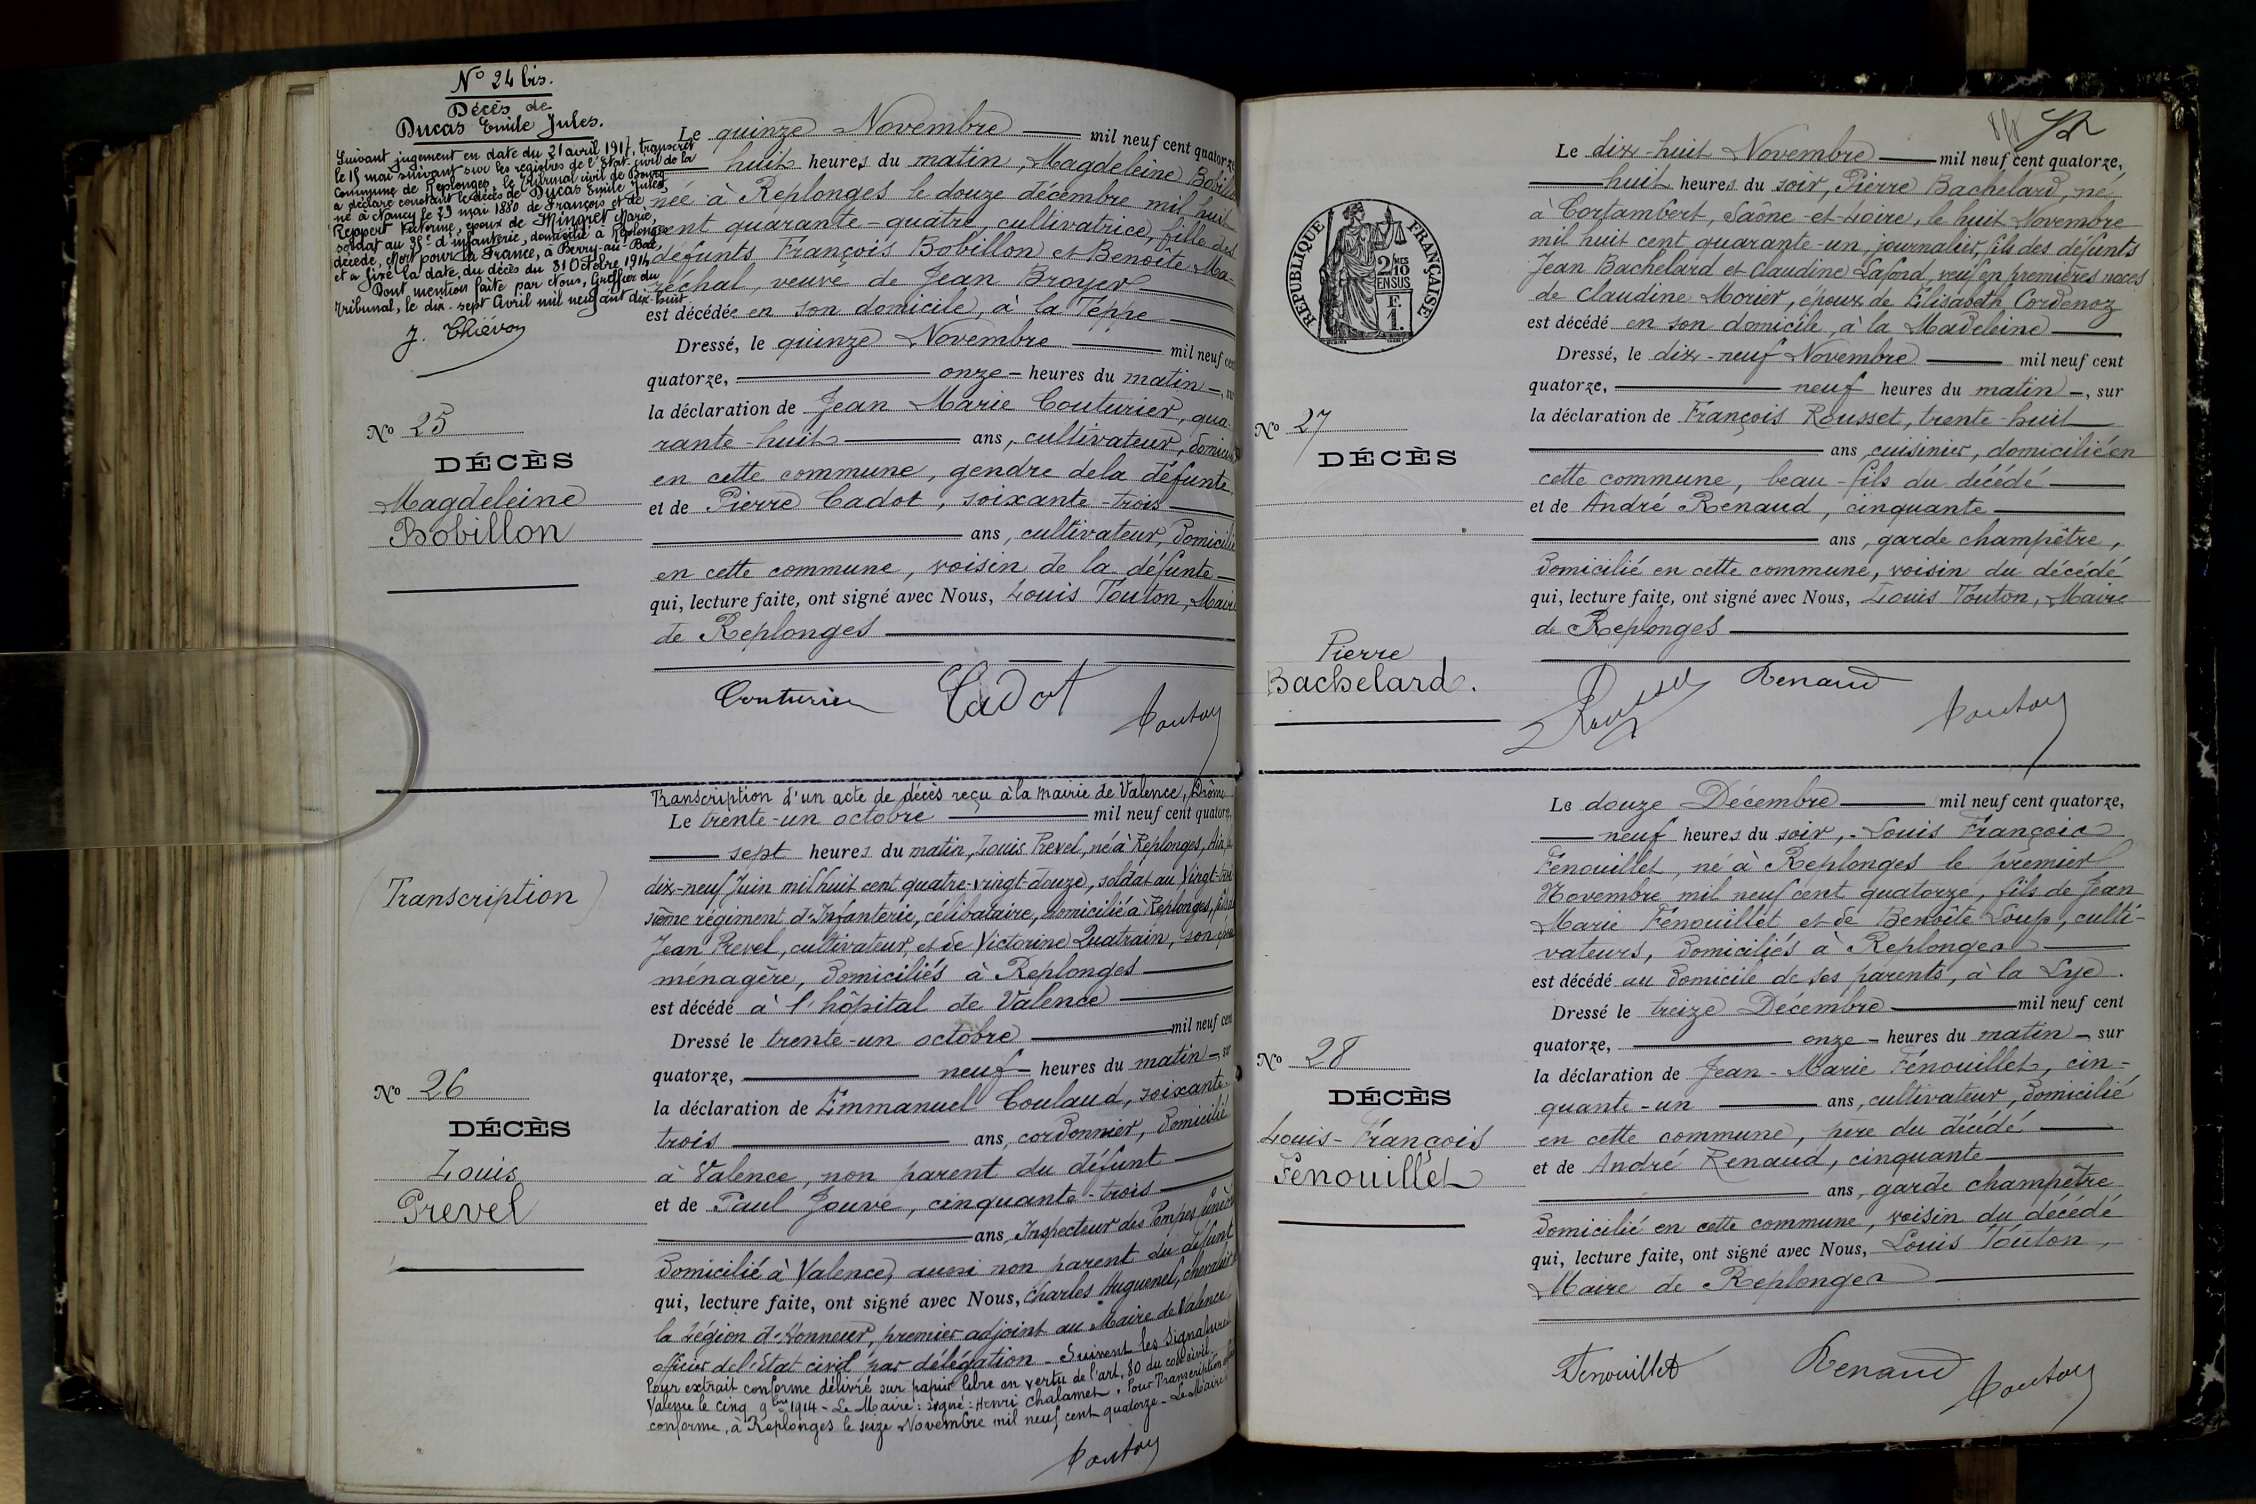 N° 24 bis.
Décès de
Ducas Emile Jules.
Suivant jugement en date du 21 avril 1917, transcrit
le 15 mai suivant sur les registres de l'Etat-civil de la
Commune de Replonges, le Tribunal civil de Bourg
a déclaré constant le décès de Ducas Emile Jules,
né à Nancy le 29 mai 1880 de François et de
Reppert Victorine, époux de Mingret Marie,
soldat au d'infanterie, domicilié à Replonges
décédé, Mort pour la France, à Berry-au-Bac,
et a fixé la date du décès du 31 Octobre 1914
Dont mention faite par Nous, Greffier du
Tribunal, le dix-sept Avril mil neuf cent dix-huit
J. Thiévon
N° 25
DÉCÈS
Magdeleine
Bobillon
Le quinze Novembre mil neuf cent quatorze
huit heures du matin, Magdeleine Bobillon
née à Replonges le douze décembre mil huit
cent quarante-quatre, cultivatrice, fille des
défunts François Bobillon et Benoîte Ma-
réchal, veuve de Jean Broyer
est décédée en son domicile, à la Teppe
Dressé, le quinze Novembre mil neuf cent
quatorze, onze heures du matin, sur
la déclaration de Jean Marie Couturier, qua-
rante-huit ans, cultivateur, domicilié
en cette commune, gendre de la défunte
et de Pierre Cadot, soixante-trois
ans, cultivateur, domicilié
en cette commune, voisin de la défunte
qui, lecture faite, ont signé avec Nous, Louis Touton, Maire
de Replonges
Couturier Cadot Touton
(Transcription)
N° 26
DÉCÈS
Louis
Prevel
Transcription d'un acte de décès reçu à la mairie de Valence, Drôme
Le trente-un octobre mil neuf cent quatorze,
sept heures du matin, Louis Prevel, né à Replonges, Ain, le
dix-neuf Juin mil huit cent quatre-vingt-douze, soldat au Vingt-troi-
sième régiment d'Infanterie, célibataire, domicilié à Replonges, fils de
Jean Prevel, cultivateur, et de Victorine Quatrain, son épouse
ménagère, domiciliés à Replonges
est décédé à l'hôpital de Valence
Dressé le trente-un octobre mil neuf cent
quatorze, neuf heures du matin, sur
la déclaration de Emmanuel Coulaud, soixante-
trois ans, cordonnier, domicilié
à Valence, non parent du défunt
et de Paul Jouve, cinquante-trois
ans, Inspecteur des Pompes funèbres
domicilié à Valence, aussi non parent du défunt
qui, lecture faite, ont signé avec Nous, Charles Huguenel, chevalier de
la Légion d'Honneur, premier adjoint au Maire de Valence
officier de l'Etat civil par délégation. Suivent les signatures
Pour extrait conforme délivré sur papier libre en vertu de l'art. 80 du code civil
Valence le cinq 9bre 1914 - Le Maire : signé : Henri Chalamet. Pour Transcription
conforme, à Replonges le seize Novembre mil neuf cent quatorze - Le Maire
Touton
RÉPUBLIQUE FRANÇAISE
2/10 MES
EN SUS
F.
1.
N° 27
DÉCÈS
Pierre
Bachelard.
Le dix-huit Novembre mil neuf cent quatorze,
huit heures du soir, Pierre Bachelard, né
à Cortambert, Saône-et-Loire, le huit Novembre
mil huit cent quarante-un, journalier, fils des défunts
Jean Bachelard et Claudine Lafond, veuf en premières noces
de Claudine Morier, époux de Elisabeth Cordenoz
est décédé en son domicile, à la Madeleine
Dressé, le dix-neuf Novembre mil neuf cent
quatorze, neuf heures du matin, sur
la déclaration de François Rousset, trente-huit
ans, cuisinier, domicilié en
cette commune, beau-fils du décédé
et de André Renaud, cinquante
ans, garde champêtre,
domicilié en cette commune, voisin du décédé
qui, lecture faite, ont signé avec Nous, Louis Touton, Maire
de Replonges
Rousset Renaud Touton
N° 28
DÉCÈS
Louis-François
Fenouillet
Le douze Décembre mil neuf cent quatorze,
neuf heures du soir, Louis François
Fenouillet, né à Replonges le premier
Novembre mil neuf cent quatorze, fils de Jean
Marie Fenouillet et de Benoîte Loup, culti-
vateurs, domiciliés à Replonges
est décédé au domicile de ses parents, à la Lye.
Dressé le treize Décembre mil neuf cent
quatorze, onze heures du matin, sur
la déclaration de Jean-Marie Fenouillet, cin-
quante-un ans, cultivateur, domicilié
en cette commune, père du décédé
et de André Renaud, cinquante
ans, garde champêtre
domicilié en cette commune, voisin du décédé
qui, lecture faite, ont signé avec Nous, Louis Touton,
Maire de Replonges
Fenouillet Renaud Touton